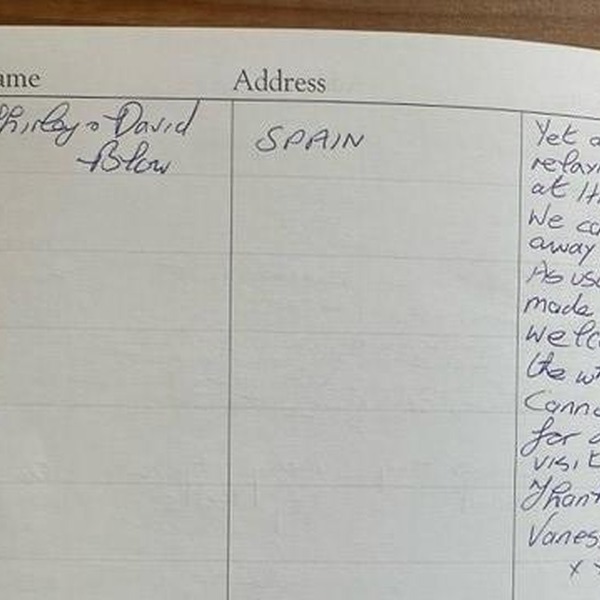 ame
Address
hirley & David
Blow
SPAIN
Yet a
relax
at H
We ca
away
As usu
made
welco
the wh
Canno
for a
visit
Thank
Vaness
x x